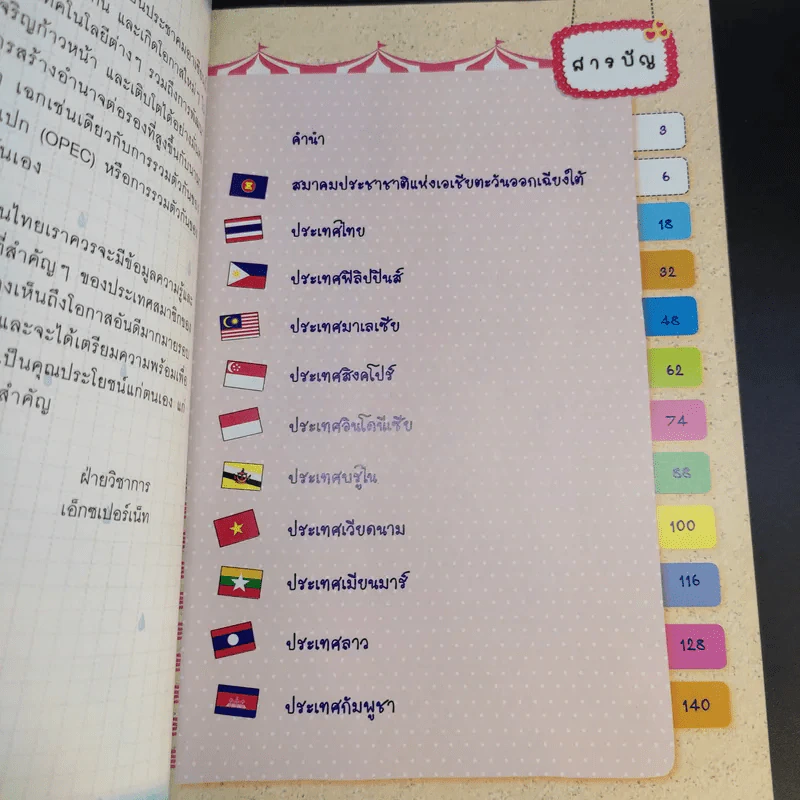 จริญก้าวหน้า และเติบโตได้อย่าง
รสร้างอำนาจต่อรองที่สูงขึ้นกับ
เฉกเช่นเดียวกับการรวมตัวกัน
เปก (OPEC) หรือการรวมตัวกัน
นเอง
นไทยเราควรจะมีข้อมูลความรู้และ
ที่สำคัญๆ ของประเทศสมาชิก
งเห็นถึงโอกาสอันดีมากมายรอบ
และจะได้เตรียมความพร้อมเพื่อ
เป็นคุณประโยชน์แก่ตนเอง แก่
สำคัญ
ฝ่ายวิชาการ
เอ็กซเปอร์เน็ท
สารบัญ
คำนำ 3
สมาคมประชาชาติแห่งเอเชียตะวันออกเฉียงใต้ 6
ประเทศไทย 18
ประเทศฟิลิปปินส์ 32
ประเทศมาเลเซีย 48
ประเทศสิงคโปร์ 62
ประเทศอินโดนีเซีย 74
ประเทศบรูไน 88
ประเทศเวียดนาม 100
ประเทศเมียนมาร์ 116
ประเทศลาว 128
ประเทศกัมพูชา 140